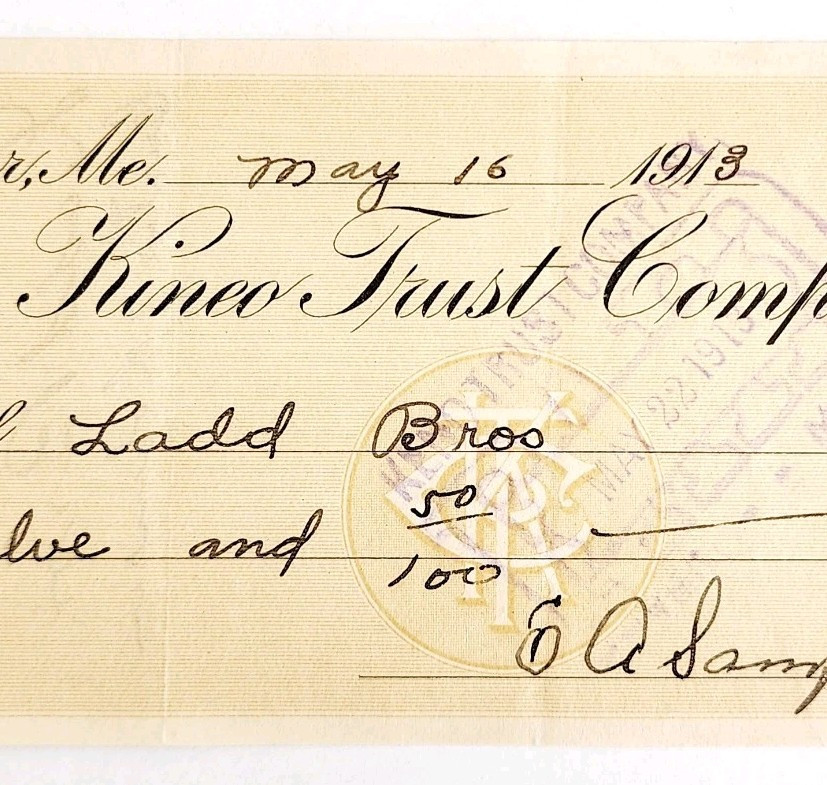 r, Me. May 16 1913
Kineo Trust Comp
Ladd Bros
lve and 50/100
E A Samp
KINEO TRUST COMPANY
MAY 22 1913